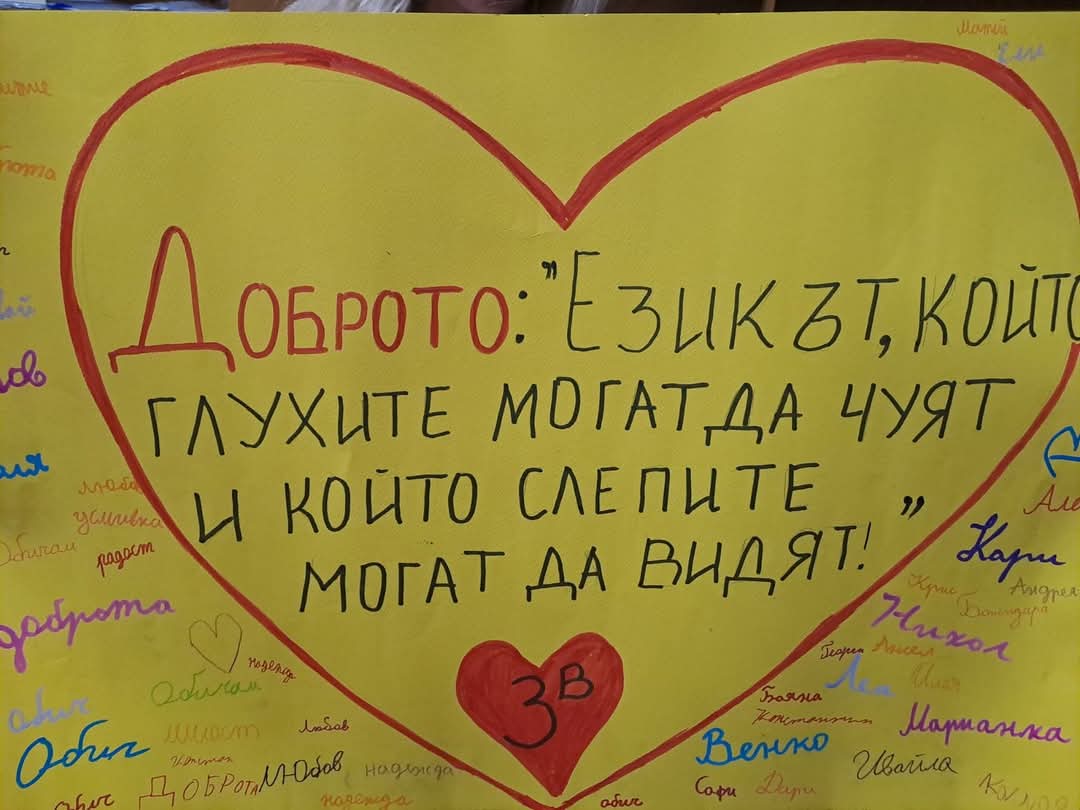 Матей
Доброто: "Езикът, който
глухите могат да чуят
и който слепите
могат да видят!"
3в
усмивка
Обичам
радост
доброта
надежда
Обичам
обич
Обич
милост
Любов
Доброта
Любов
надежда
надежда
обич
Кари
Крис
Андрея
Божидара
Никол
Ангел
Леа
Илия
Бояна
Константин
Марианка
Венко
Ивайла
Сафи
Дари